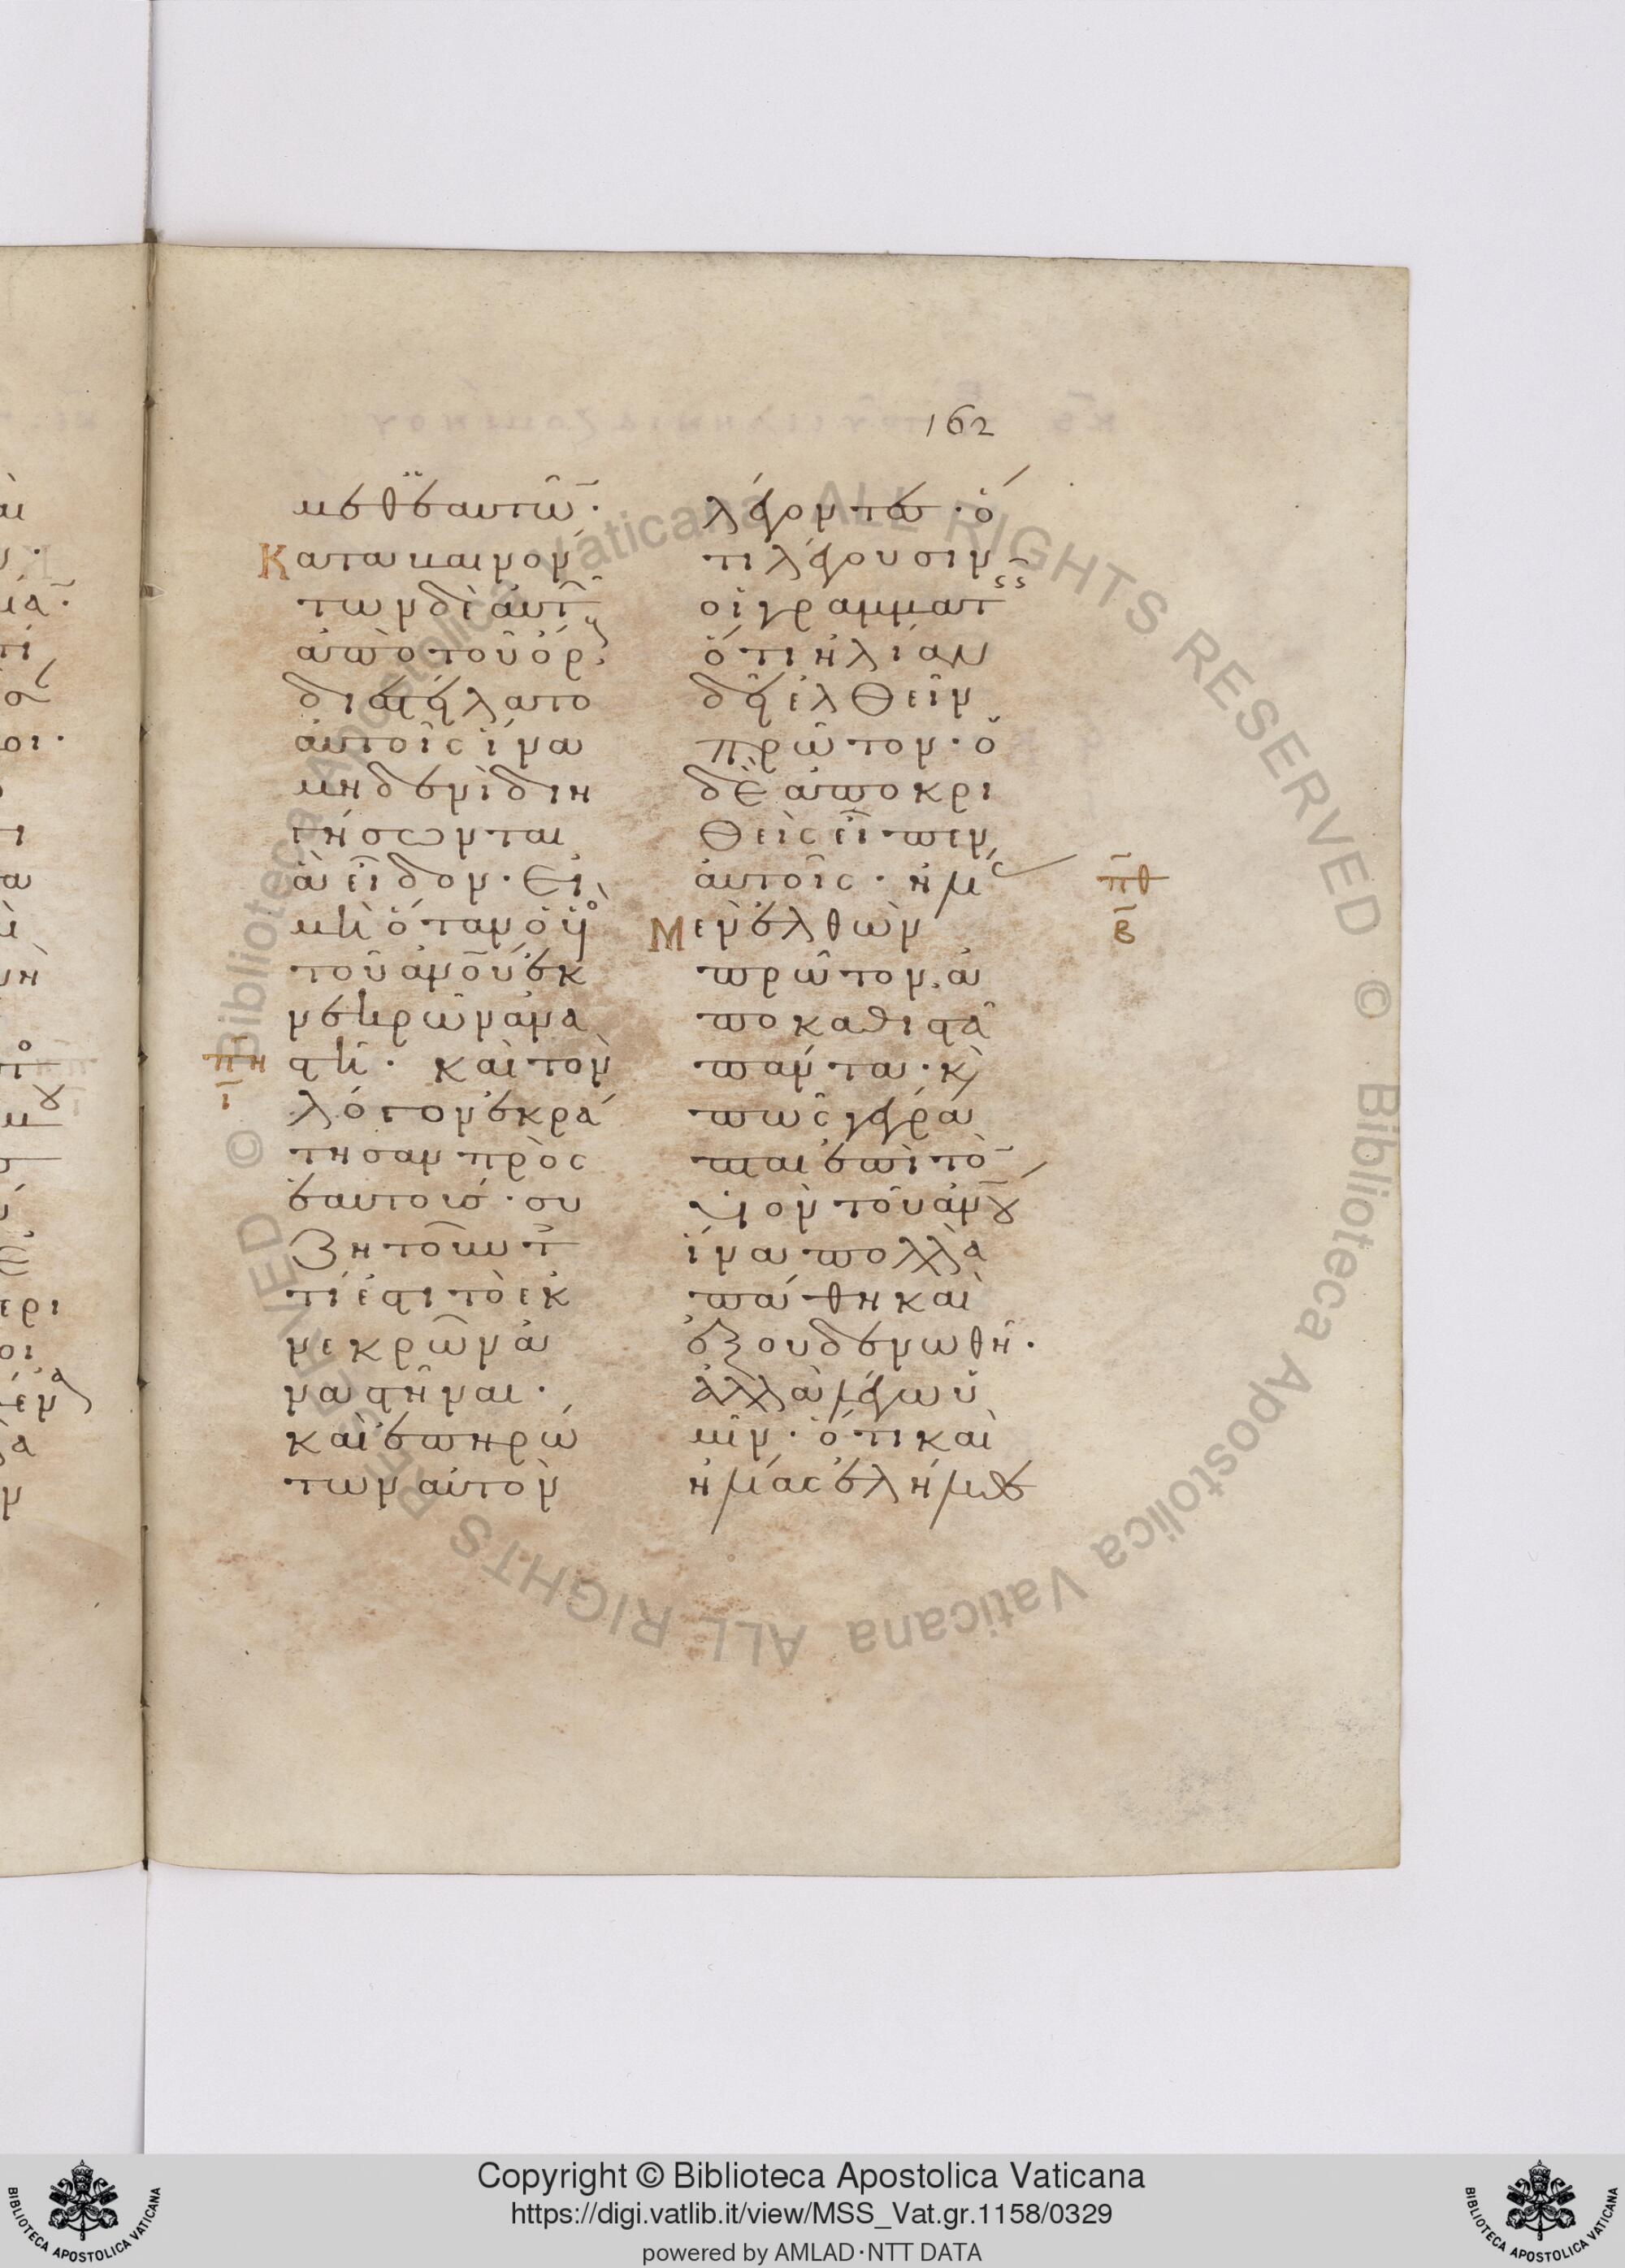 162
μεθ' ἑαυτῶ̅·
Καταβαινόν
των δὲ αὐτ̅
ἀπὸ τοῦ ὄρ
διεστείλατο
αὐτοῖς ἵνα
μηδενὶ διη
γήσωνται
ἃ εἶδον· εἰ
μὴ ὅταν ὁ υἱὸ
τοῦ ἀνο̅υ ἐκ
νεκρῶν ἀνα
π̅η̅
στῆ· καὶ τὸν
ι̅
λόγον ἐκρά
τησαν πρὸς
ἑαυτούσ· συ
ζητοῦντ
τί ἐστι τὸ ἐκ
νεκρῶν ἀ
ναστῆναι·
καὶ ἐπηρώ
των αὐτὸν
λέγοντες· ὅ
τι λέγουσιν
οἱ γραμματ
ὅτι ἠλίαν
δεῖ ἐλθεῖν
πρῶτον· ὁ
δὲ ἀποκρι
θεὶς εἶπεν
αὐτοῖς· ἠλ
π̅θ̅
Μὲν ἐλθὼν
β̅
πρῶτον, ἀ
ποκαθιστᾶ
πάντα· κ
πῶς γέγρα
πται ἐπὶ τὸ
υἱὸν τοῦ ἀνο̅υ
ἵνα πολλὰ
πάθη καὶ
ἐξουδενωθῆ·
ἀλλὰ λέγω ὑ
μῖν· ὅτι καὶ
ἠλίας ἐλήλυθε
Copyright © Biblioteca Apostolica Vaticana
https://digi.vatlib.it/view/MSS_Vat.gr.1158/0329
powered by AMLAD·NTT DATA
BIBLIOTECA APOSTOLICA VATICANA
BIBLIOTECA APOSTOLICA VATICANA
© Biblioteca Apostolica Vaticana ALL RIGHTS RESERVED © Biblioteca Apostolica Vaticana ALL RIGHTS RESERVED